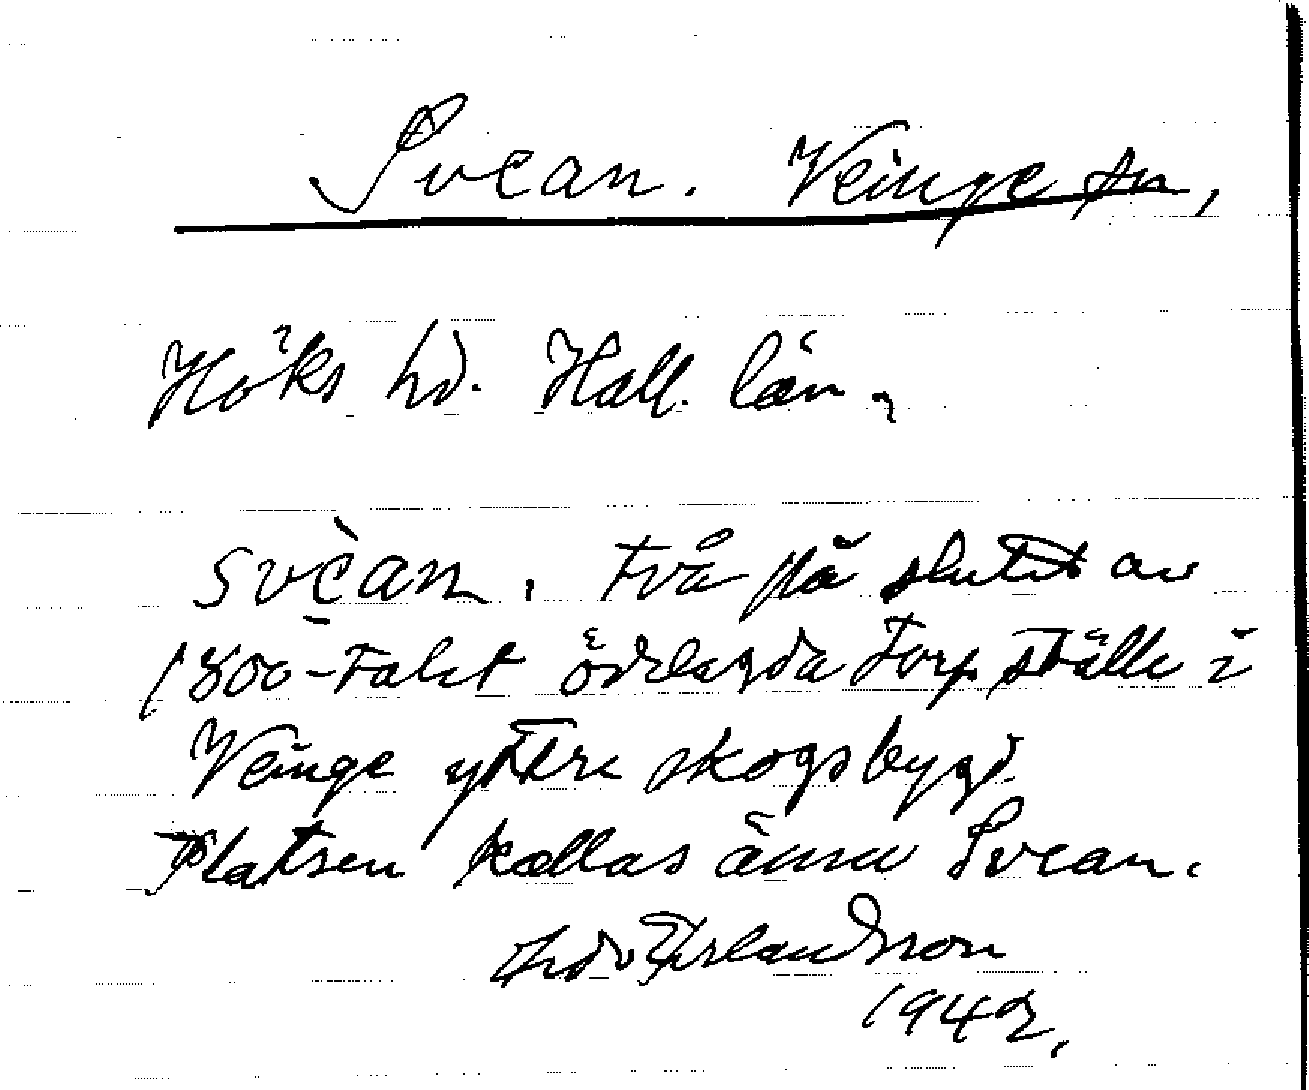 Svean. Veinge sn,
Höks hd. Hall. län.
svèan. två på slutet av
1800-talet ödelagda torpställe i
Veinge yttre skogsbygd.
Platsen kallas ännu Svean.
Erlandsson
1942.